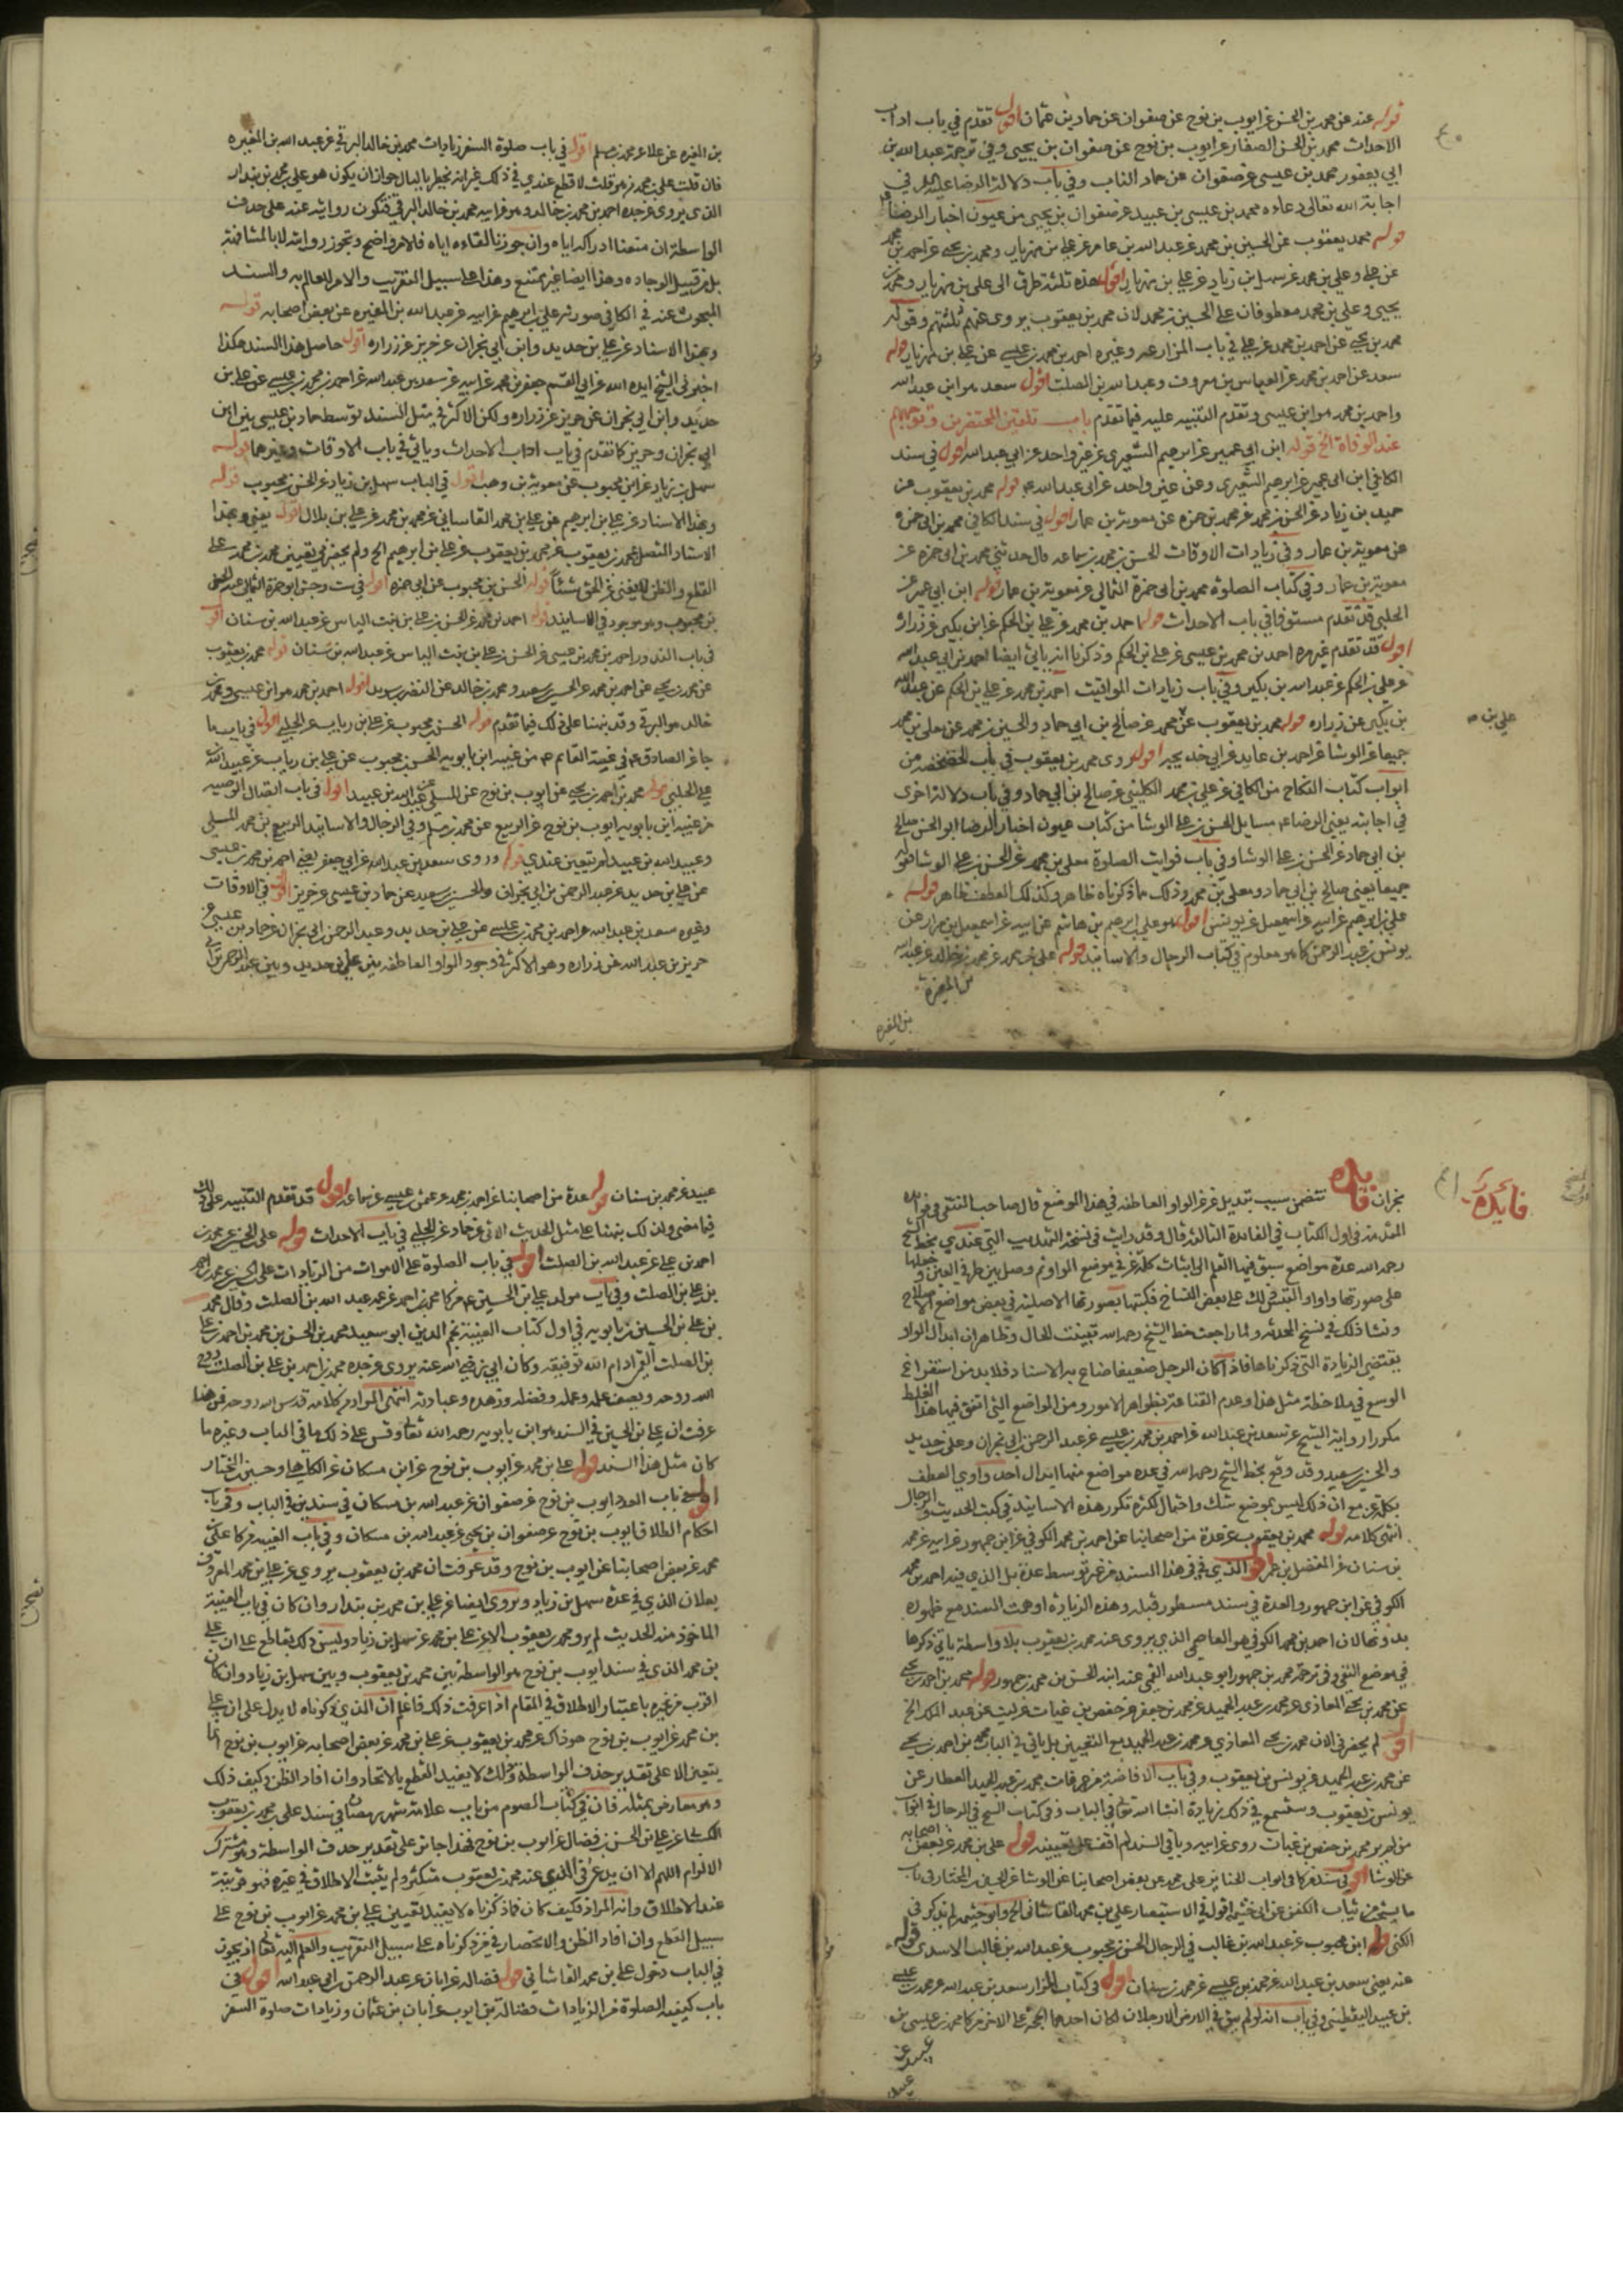 قوله عنه عن محمد بن الحسن عن ايوب بن نوح عن صفوان عن حماد بن عثمان اقول تقدم في باب اداب
الاحداث محمد بن الحسن الصفار عن ايوب بن نوح عن صفوان بن يحيى وفي ترجمة عبد الله بن
ابي يعفور محمد بن عيسى عن صفوان عن حماد الناب وفي باب دلالة الرضا عليه السلم في
اجابة الله تعالى دعاءه محمد بن عيسى بن عبيد عن صفوان بن يحيى من عيون اخبار الرضا
قوله محمد يعقوب عن الحسين بن محمد عن عبد الله بن عامر عن علي بن مهزيار ومحمد بن يحيى عن احمد بن محمد
عن علي وعلي بن محمد عن سهل بن زياد عن علي بن مهزيار اقول هذه ثلثة طرق الى علي بن مهزيار ومحمد بن
يحيى وعلي بن محمد معطوفان على الحسين بن محمد لان محمد بن يعقوب يروي عنهم ثلثتهم وقوله
محمد بن يحيى عن احمد بن محمد عن علي في باب المزارعة وغيره احمد بن محمد بن عيسى عن علي بن مهزيار قوله
سعد عن احمد بن محمد عن العباس بن معروف وعبد الله بن الصلت اقول سعد هو ابن عبد الله
واحمد بن محمد هو ابن عيسى وتقدم التنبيه عليه فيما تقدم باب تلقين المحتضرين وتوجيههم
عند الوفاة الخ قوله ابن ابي عمير عن ابرهيم الشعيري عن غير واحد عن ابي عبد الله اقول في سند
الكافي ابن ابي عمير عن ابرهيم الشعيري وعن غير واحد عن ابي عبد الله قوله محمد بن يعقوب عن
حميد بن زياد عن الحسن بن محمد عن محمد بن حمزه عن معوية بن عمار اقول في سند الكافي محمد بن ابي حمزه
عن معوية بن عمار وفي زيادات الاوقات الحسن بن محمد بن سماعه قال حدثني محمد بن ابي حمزه عن
معوية بن عمار وفي كتاب الصلوة محمد بن ابي حمزة الثمالي عن معوية بن عمار قوله ابن ابي عمير عن
الحلبي قد تقدم مستوفا في باب الاحداث قوله احمد بن محمد عن علي بن الحكم عن ابن بكير عن زراره
اقول قد تقدم غير مره احمد بن محمد بن عيسى عن علي بن الحكم وذكرنا انه ياتي ايضا احمد بن ابي عبد الله
عن علي بن الحكم عن عبد الله بن بكير وفي باب زيادات المواقيت احمد بن محمد عن علي بن الحكم عن عبد الله
بن بكير عن زراره قوله محمد بن يعقوب عن محمد عن صالح بن ابي حماد والحسين بن محمد عن معلى بن محمد
علي بن
جميعا عن الوشا عن احمد بن عايذ عن ابي خديجه اقول روى محمد بن يعقوب في باب من
ابواب كتاب النكاح من الكافي عن علي بن محمد الكليني عن صالح بن ابي حماد وفي باب دلالة اخرى
في اجابته يعني الرضا مسايل الحسن بن علي الوشا من كتاب عيون اخبار الرضا ابو الحسن صالح
بن ابي حماد عن الحسن بن علي الوشا وفي باب فوايت الصلوة معلى بن محمد عن الحسن بن علي الوشا فقوله
جميعا يعني صالح بن ابي حماد ومعلى بن محمد وذلك ما ذكرناه ظاهر وكذلك العطف ظاهر قوله
علي بن ابرهيم عن ابيه عن اسمعيل عن يونس اقول هو علي بن ابرهيم بن هاشم عن ابيه عن اسمعيل بن مرار عن
يونس بن عبد الرحمن كما هو معلوم في كتاب الرجال والاسانيد قوله علي بن محمد عن محمد بن خالد عن عبد الله
بن المغيرة
بن المغيره عن علا عن محمد بن مسلم اقول في باب صلوة السفر زيادات محمد بن خالد البرقي عن عبد الله بن المغيره
فان قلت علي بن محمد من هو قلت لا قطع عندي في ذلك غير انه يخطر بالبال جواز ان يكون هو علي بن محمد بن بندار
الذي يروي عن جده احمد بن محمد بن خالد وهو عن ابيه محمد بن خالد البرقي فتكون روايته عنه على حذف
الواسطة ان منعنا ادراكه اياه وان جوزنا لقاءه اياه فالامر واضح وتجوز روايته لا بالمشافهة
بل من قبيل الوجاده وهذا ايضا غير ممتنع وهذا على سبيل التقريب والامر للعالم به والسند
المبحوث عنه في الكافي صورته علي بن ابرهيم عن ابيه عن عبد الله بن المغيره عن بعض اصحابه قوله
وبهذا الاسناد عن علي بن حديد وابن ابي نجران عن حريز عن زراره اقول حاصل هذا السند هكذا
اخبرني الشيخ ايده الله عن ابي القسم جعفر بن محمد عن ابيه عن سعد بن عبد الله عن احمد بن محمد بن عيسى عن علي بن
حديد وابن ابي نجران عن حريز عن زراره ولكن الاكثر في مثل السند توسط حماد بن عيسى بين ابن
ابي نجران وحريز كما تقدم في باب اداب الاحداث وياتي في باب الاوقات وغيرها قوله
سهل بن زياد عن ابن محبوب عن معوية بن وهب اقول في الباب سهل بن زياد عن الحسن بن محبوب قوله
وبهذا الاسناد عن علي بن ابرهيم عن علي بن محمد القاساني عن محمد بن محمد عن علي بن بلال اقول يعني وبهذا
الاسناد المتصل بمحمد بن يعقوب عن محمد بن يعقوب عن علي بن ابرهيم الخ ولم يحضرني تعيين محمد بن محمد على
القطع والظن لا يغني عن الحق شيئا قوله الحسن بن محبوب عن ابي حمزه اقول في ست وجش ابو حمزة الثمالي عنه الحسن
بن محبوب وهو موجود في الاسانيد قوله احمد بن محمد عن الحسن بن علي بن بنت الياس عن عبد الله بن سنان اقول
في باب النذور احمد بن محمد بن عيسى عن الحسن بن علي بن بنت الياس عن عبد الله بن سنان قوله محمد بن يعقوب
عن محمد بن يحيى عن احمد بن محمد عن الحسين بن سعيد ومحمد بن خالد عن النضر بن سويد اقول احمد بن محمد هو ابن عيسى ومحمد بن
خالد هو البرقي وقد نبهنا على ذلك فيما تقدم قوله الحسن بن محبوب عن علي بن رياب عن الحلبي اقول في باب ما
جا عن الصادق في غيبة القائم من غيبة ابن بابويه الحسن بن محبوب عن علي بن رياب عن عبيد الله
علي الحلبي قوله محمد بن احمد بن يحيى عن ايوب بن نوح عن المسلي عن عبيد الله بن عبيد اقول في باب اتصال الوصيه
من غيبة ابن بابويه ايوب بن نوح عن الربيع عن محمد بن مسلم وفي الرجال والاسانيد الربيع بن محمد المسلي
وعبيد الله بن عبيد لم يتعين عندي قوله وروى سعد بن عبد الله عن ابي جعفر يعني احمد بن محمد بن عيسى
عن علي بن حديد عن عبد الرحمن بن ابي نجران والحسين بن سعيد عن حماد بن عيسى عن حريز اقول في الاوقات
وغيره سعد بن عبد الله عن احمد بن محمد بن عيسى عن علي بن حديد وعبد الرحمن بن ابي نجران عن حماد بن عيسى عن
حريز بن عبد الله عن زراره وهو الاكثر في وجود الواو العاطفه بين علي بن حديد وبين عبد الرحمن بن ابي
فايده
نجران فايده تتضمن سبب تبديل عن عن الواو العاطفه في هذا الموضع قال صاحب المنتقى في فوايده
المقدمة في اول الكتاب في الفائدة الثالثة قال وقد رايت في نسخة التهذيب التي عندي بخط الشيخ
رحمه الله عدة مواضع سبق فيها القلم الى اثبات كلمة عن في موضع الواو ثم وصل بين طرفي العين وجعلها
على صورتها واوا والتبس ذلك على بعض النساخ فكتبها بصورتها الاصلية في بعض مواضع الاصلاح
وفشا ذلك في نسخ المجددة ولما راجعت خط الشيخ رحمه الله تبينت الحال وظاهر ان ابدال الواو
يقتضي الزيادة التي ذكرناها فاذا كان الرجل ضعيفا ضاع به الاسناد فلا بد من استفراغ
الوسع في ملاحظة مثل هذا وعدم القناعة بظواهر الامور ومن المواضع التي اتفق فيها هذا الغلط
مكررا رواية الشيخ عن سعد بن عبد الله عن احمد بن محمد بن عيسى عن عبد الرحمن بن ابي نجران وعلي بن حديد
والحسين بن سعيد وقد وقع بخط الشيخ رحمه الله في عدة مواضع منها ابدال احد واوي العطف
بكلمة عن مع ان ذلك ليس بموضع شك واحتمال لكثرة تكرر هذه الاسانيد في كتب الحديث والرجال
انتهى كلامه قوله محمد بن يعقوب عن عدة من اصحابنا عن احمد بن محمد الكوفي عن ابن جمهور عن ابيه عن محمد
بن سنان عن المفضل بن عمر اقول الذي في في هذا السند من غير توسط عدة بل الذي فيه احمد بن محمد
الكوفي عن ابن جمهور والعدة في سند مسطور قبله وهذه الزيادة اوهت السند مع ظهوره
بدونها لان احمد بن محمد الكوفي هو العاصمي الذي يروي عنه محمد بن يعقوب بلا واسطة ياتي ذكرها
في موضع النفي وفي ترجمة محمد بن جمهور ابو عبد الله القمي عنه ابنه الحسن بن محمد بن جمهور قوله محمد بن احمد بن يحيى
عن محمد بن يحيى المعاذي عن محمد بن عبد الحميد عن محمد بن جعفر عن حفص بن غياث عن ليث عن عبد الملك الخ
اقول لم يحضرني الان محمد بن يحيى المعاذي ومحمد بن عبد الحميد مع التعيين بل ياتي في الباب محمد بن احمد بن يحيى
عن محمد بن عبد الحميد عن يونس بن يعقوب وفي باب الافاضة من عرفات محمد بن عبد الحميد العطار عن
يونس بن يعقوب وستسمع في ذلك زيادة انشا الله تعالى في الباب وفي كتاب الشيخ في الرجال في ابواب
من لم يرو محمد بن حفص بن غياث روى عن ابيه وباقي السند لم اقف على تعيينه قوله علي بن محمد عن بعض اصحابه
عن الوشا اقول في سند من كافي ابواب الجنايز علي بن محمد عن بعض اصحابنا عن الوشا عن الحسين بن المختار في باب
ما يستحب من ثياب الكفن عن ابي خثيمه اقول في الاستبصار علي بن محمد القاشاني الخ وابو خثيمه لم يذكر في
الكنى قوله ابن محبوب عن عبد الله بن غالب في الرجال الحسن بن محبوب عن عبد الله بن غالب الاسدي قوله
عنه يعني سعد بن عبد الله عن محمد بن عيسى عن محمد بن سنان اقول في كتاب المزار سعد بن عبد الله عن محمد بن عيسى
بن عبيد اليقطيني وفي باب انه لو لم يبق في الارض الا رجلان لكان احدهما الحجة على الاخر من كا محمد بن عيسى بن
عبيد عن
عبيد عن محمد بن سنان قوله عدة من اصحابنا عن احمد بن محمد عن عثمن بن عيسى عن سماعه اقول قد تقدم التنبيه على ذلك
فيما مضى ولذلك نبهنا على مثل الحديث الاتي عن حماد عن الحلبي في باب الاحداث قوله علي بن الحسين عن محمد بن
احمد بن علي عن عبد الله بن الصلت اقول في باب الصلوة على الاموات من الزيادات علي بن الحسين عن محمد بن احمد
بن علي بن الصلت وفي باب مولد علي بن الحسين من كا محمد بن احمد عن عمه عبد الله بن الصلت وقال محمد
بن علي بن الحسين بن بابويه في اول كتاب الغيبة نجم الدين ابو سعيد محمد بن الحسن بن محمد بن احمد بن علي
بن الصلت القمي ادام الله توفيقه وكان ابي رضي الله عنه يروي عن جده محمد بن احمد بن علي بن الصلت قدس
الله روحه ويصف علمه وعمله وفضله وزهده وعبادته انتهى المراد من كلامه قدس الله روحه فمن هنا
عرفت ان علي بن الحسين في السند هو ابن بابويه رحمه الله تعالى وقس على ذلك ما في الباب وغيره ما
كان مثل هذا السند قوله علي بن محمد عن ايوب بن نوح عن ابن مسكان عن الكاهلي وحسين بن المختار
اقول في باب العدد ايوب بن نوح عن صفوان عن عبد الله بن مسكان في سندين في الباب وفي باب
احكام الطلاق ايوب بن نوح عن صفوان بن يحيى عن عبد الله بن مسكان وفي باب الغيبة من كا علي بن
محمد عن بعض اصحابنا عن ايوب بن نوح وقد عرفت ان محمد بن يعقوب يروي عن علي بن محمد المعروف
بعلان الذي في عدة سهل بن زياد ويروى ايضا عن علي بن محمد بن بندار وان كان في باب الغيبة
الماخوذ منه الحديث لم يرو محمد بن يعقوب الا عن علي بن محمد عن سهل بن زياد وليس ذلك بقاطع على ان علي
بن محمد الذي في سند ايوب بن نوح هو الواسطة بين محمد بن يعقوب وبين سهل بن زياد وان كان
اقرب من غيره باعتبار الاطلاق في المقام اذا عرفت ذلك فاعلم ان الذي ذكرناه لا يدل على ان علي
بن محمد عن ايوب بن نوح هو ذاك عن محمد بن يعقوب عن علي بن محمد عن بعض اصحابه عن ايوب بن نوح انما
يتعين الا على تقدير حذف الواسطة وذلك لا يفيد القطع بالاتحاد وان افاد الظن وكيف ذلك
وهو معارض بمثله فان في كتاب الصوم من باب علامة شهر رمضان في سند علي بن محمد بن يعقوب
عن علي بن الحسن بن فضال عن ايوب بن نوح فهذا جائز على تقدير حذف الواسطة وهو مشترك
الالزام اللهم الا ان يدعى الذي عند محمد بن يعقوب متكثر ولم يثبت الاطلاق في غيره فهو قرينة
عند الاطلاق وانه المراد وكيف كان فما ذكرناه لا يفيد تعيين علي بن محمد عن ايوب بن نوح على
سبيل القطع وان افاد الظن والاختصار في ذكرناه على سبيل التقريب والعلم اليه تعالى اذ يجوز
في الباب دخول علي بن محمد القاشاني قوله فضاله عن ابان عن عبد الرحمن بن ابي عبد الله اقول في
باب كيفية الصلوة من الزيادات فضالة بن ايوب عن ابان بن عثمان وزيادات صلوة السفر